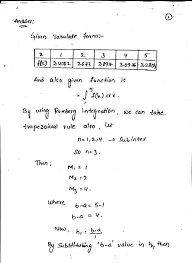 ①
Answer:
Given tabulate form:-
x 1 2 3 4 5
f(x)
And also given function is
= ∫ f(x) dx.
By using Romberg integration, we can take
trapezoidal rule also, let
n=1,2,4 → subinter
So n=3.
Then,
M₁ = 1
M₂ = 2
M₃ = 4.
where
b-a = 5-1
b-a = 4.
Now, h₁ = b-a / 1
By substituting 'b-a' value in h₁ then